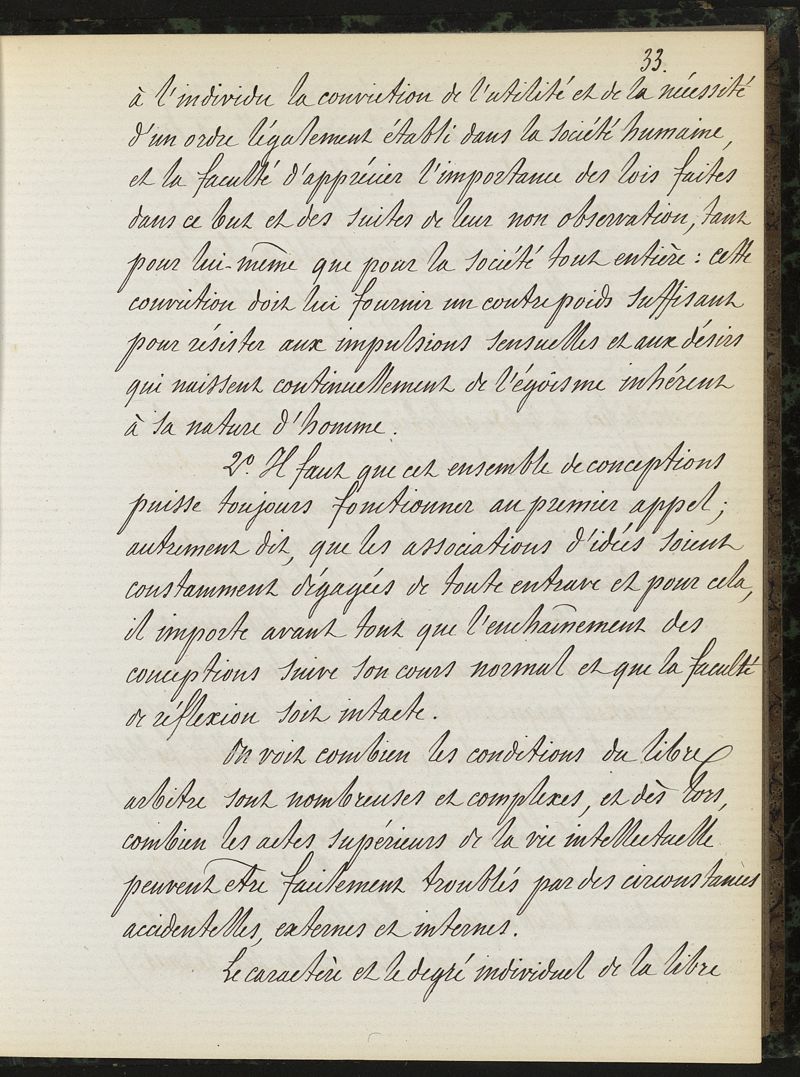 33.
à l'individu la conviction de l'utilité et de la nécessité
d'un ordre légalement établi dans la société humaine,
et la faculté d'apprécier l'importance des lois faites
dans ce but et des suites de leur non observation, tant
pour lui-même que pour la société tout entière : cette
conviction doit lui fournir un contrepoids suffisant
pour résister aux impulsions sensuelles et aux désirs
qui naissent continuellement de l'égoïsme inhérent
à sa nature d'homme.
2º. Il faut que cet ensemble de conceptions
puisse toujours fonctionner au premier appel ;
autrement dit, que les associations d'idées soient
constamment dégagées de toute entrave et pour cela,
il importe avant tout que l'enchaînement des
conceptions suive son cours normal et que la faculté
de réflexion soit intacte.
On voit combien les conditions du libre
arbitre sont nombreuses et complexes, et dès lors,
combien les actes supérieurs de la vie intellectuelle
peuvent être facilement troublés par des circonstances
accidentelles, externes et internes.
Le caractère et le degré individuel de la libre